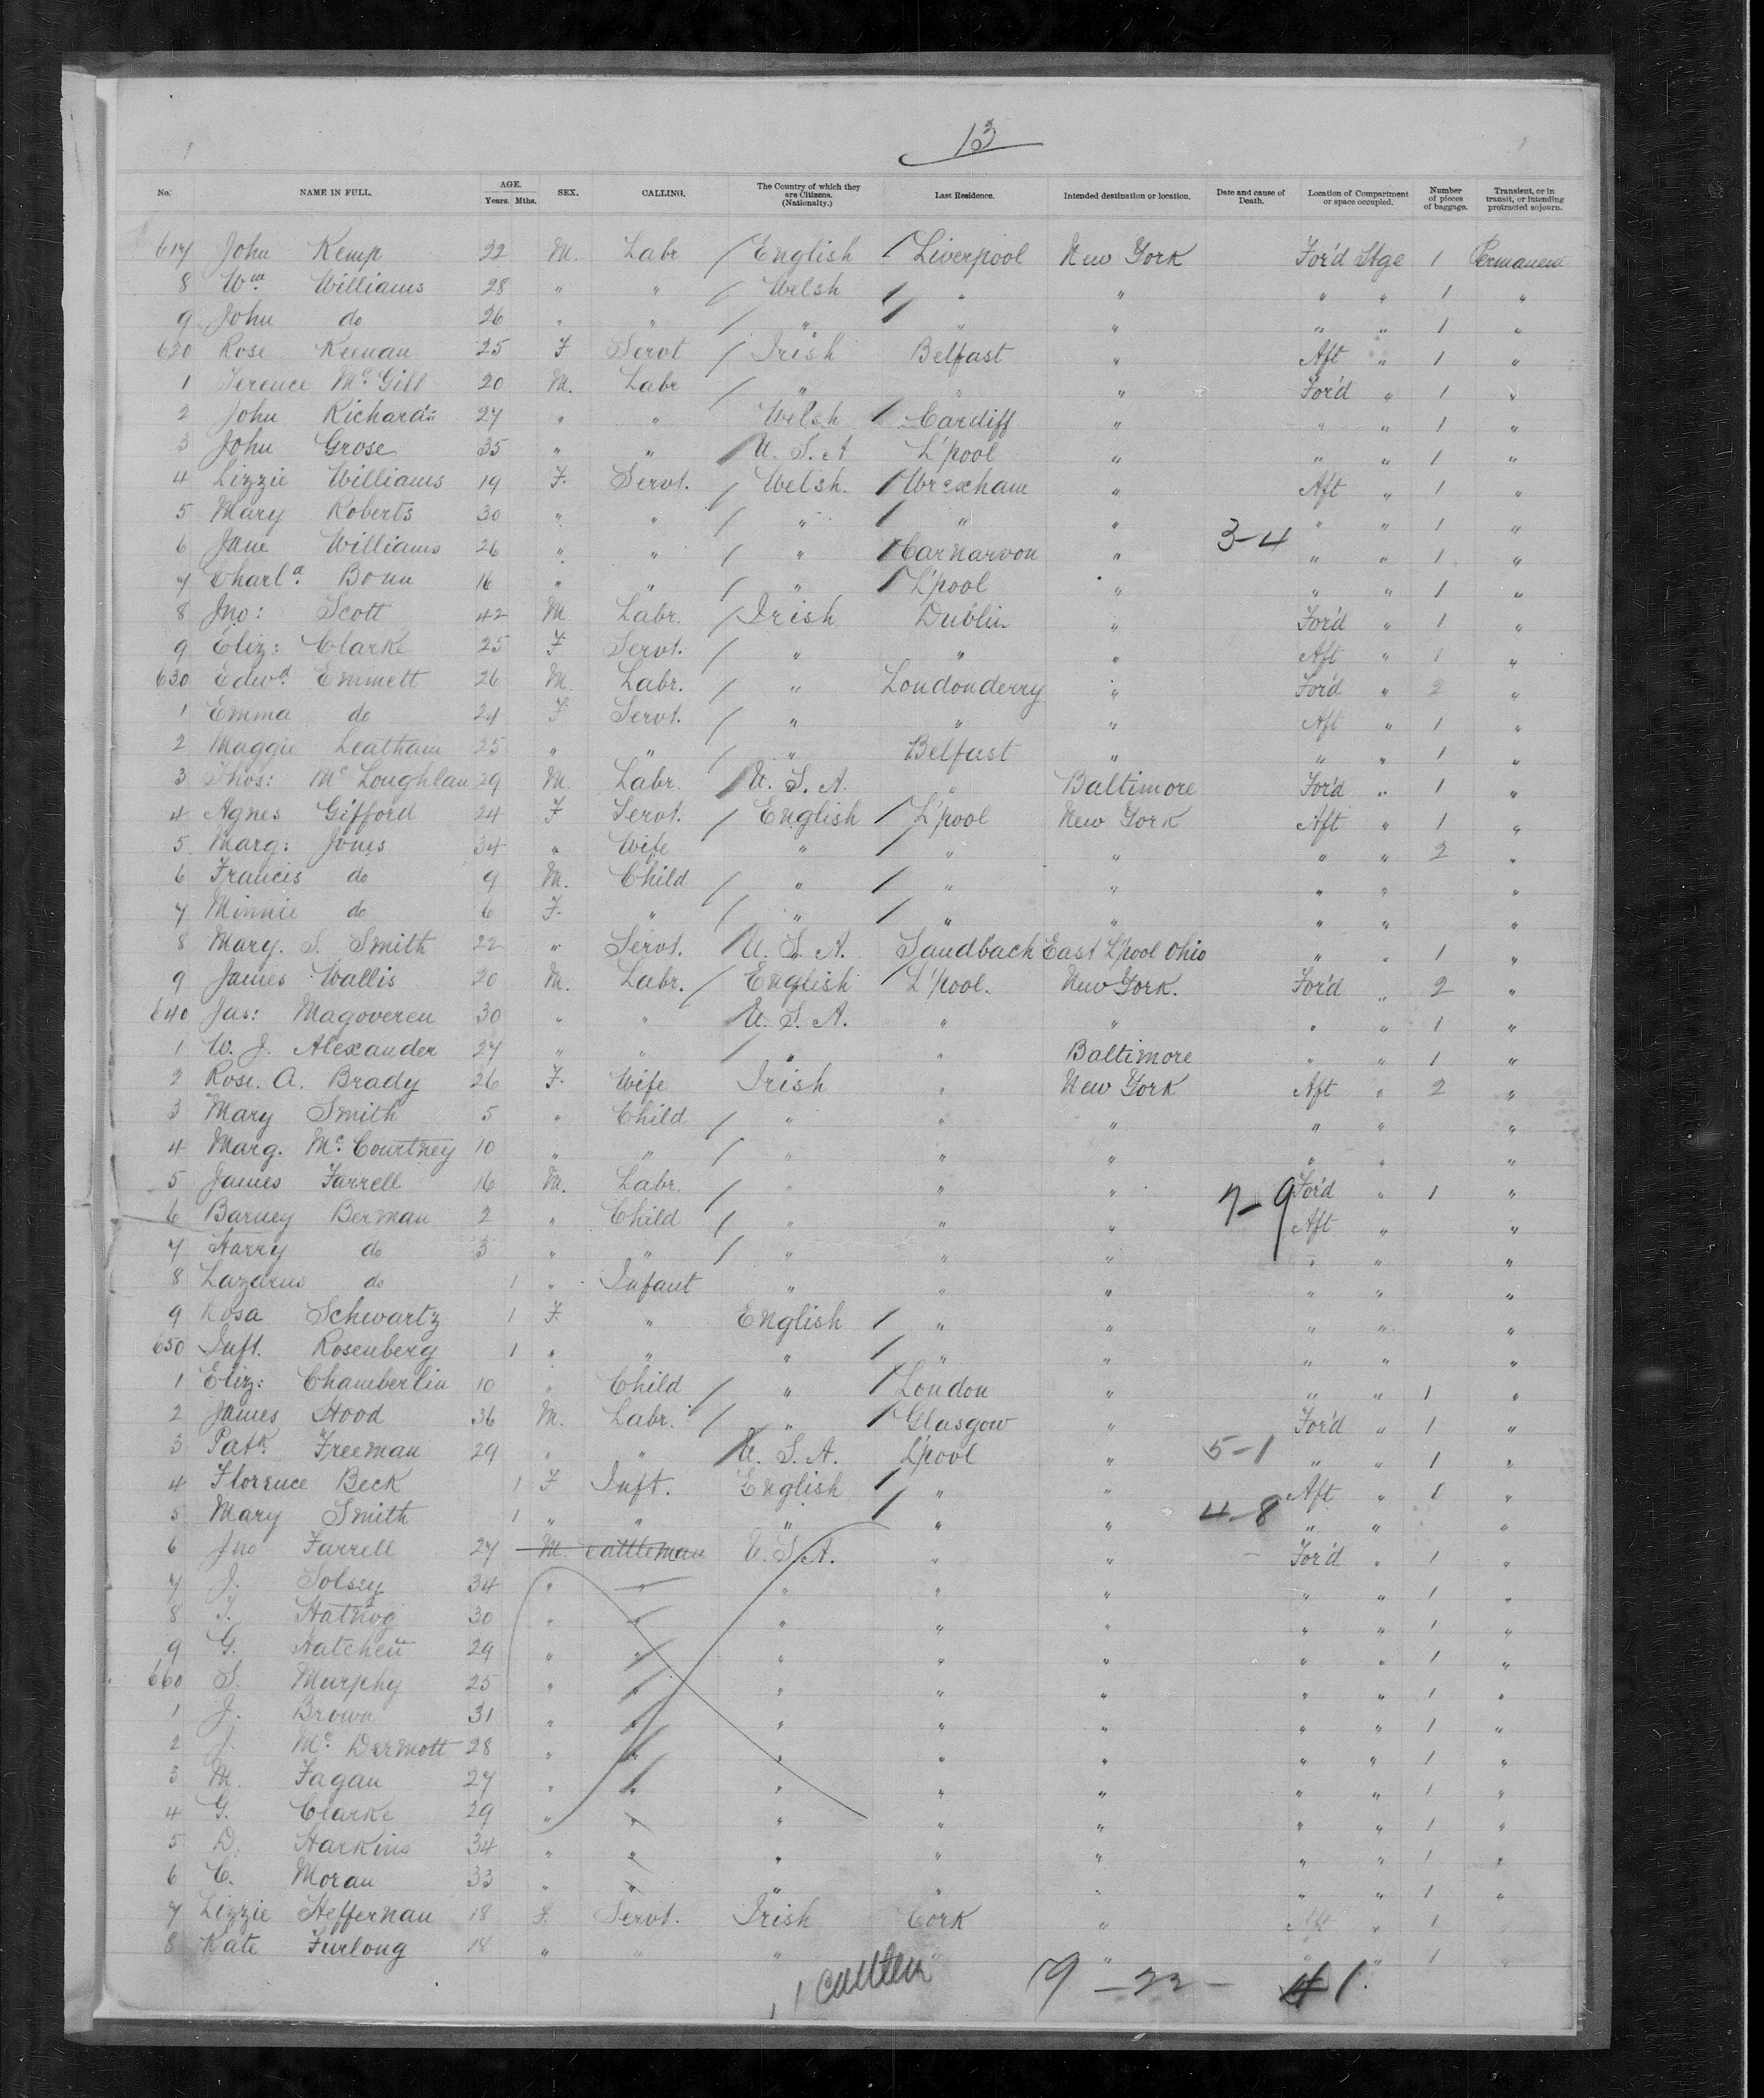 13
No. NAME IN FULL. AGE. Years. Mths. SEX. CALLING. The Country of which they are Citizens. (Nationalty.) Last Residence. Intended destination or location. Date and cause of Death. Location of Compartment or space occupied. Number of pieces of baggage. Transient, or in transit, or intending protracted sojourn.
617 John Kemp 22 M. Labr / English / Liverpool New York For'd Stge 1 Permanent
8 Wm Williams 28 " " / Welsh / " " " " 1 "
9 John do 26 " " / " / " " " " 1 "
620 Rose Keenan 25 F Servt / Irish Belfast " Aft " 1 "
1 Terence McGill 20 M. Labr / " " " For'd " 1 "
2 John Richards 27 " " Welsh / Cardiff " " " 1 "
3 John Grose 35 " " / U.S.A L'pool " " " 1 "
4 Lizzie Williams 19 F. Servt. / Welsh. / Wrexham " Aft " 1 "
5 Mary Roberts 30 " " / " / " " " " 1 "
6 Jane Williams 26 " " / " / Carnarvon " 3-4 " " 1 "
7 Charla. Bonn 16 " " / " / L'pool " " " 1 "
8 Jno: Scott 42 M. Labr. / Irish Dublin " For'd " 1 "
9 Eliz: Clarke 25 F Servt. / " " " Aft " 1 "
630 Edwd. Emmett 26 M. Labr. / " Londonderry " For'd " 2 "
1 Emma do 24 F Servt. / " " " Aft " 1 "
2 Maggie Leatham 25 " " / " Belfast " " " 1 "
3 Thos: McLoughlan 29 M. Labr. / U.S.A. " Baltimore For'd " 1 "
4 Agnes Gifford 24 F Servt. / English / L'pool New York Aft " 1 "
5 Marg: Jones 34 " Wife " / " " " " 2 "
6 Francis do 9 M. Child / " / " " " " "
7 Minnie do 6 F. " / " / " " " " "
8 Mary. S. Smith 22 " Servt. / U.S.A. Sandbach East L'pool Ohio " " 1 "
9 James Wallis 20 M. Labr. / English / L'pool. New York. For'd " 2 "
640 Jas: Magoveren 30 " " / U.S.A. " " " " 1 "
1 W. J. Alexander 27 " " / " " Baltimore " " 1 "
2 Rose. A. Brady 26 F. Wife Irish " New York Aft " 2 "
3 Mary Smith 5 " Child / " " " " " "
4 Marg. McCourtney 10 " " / " " " " " "
5 James Farrell 16 M. Labr. / " " " 7-9 For'd " 1 "
6 Barney Berman 2 " Child / " " " Aft " "
7 Harry do 3 " " / " " " " " "
8 Lazarus do 1 " Infant " " " " " "
9 Rosa Schwartz 1 F. " English / " " " " "
650 Inft. Rosenberg 1 " " " / " " " " "
1 Eliz: Chamberlin 10 " Child / " / London " " " 1 "
2 James Hood 36 M. Labr. / " / Glasgow " For'd " 1 "
3 Patk. Freeman 29 " " / U.S.A. L'pool " 5-1 " " 1 "
4 Florence Beck 1 F Inft. English / " " Aft " 1 "
5 Mary Smith 1 " " " / " " 4-8 " " "
6 Jno Farrell 27 M. Cattleman U.S.A. " " - For'd " 1 "
7 J. Solsey 34 " " " " " " " 1 "
8 T. 30 " " " " " " " 1 "
9 G. 29 " " " " " " " 1 "
660 S. Murphy 25 " " " " " " " 1 "
1 J. Brown 31 " " " " " " " 1 "
2 J. McDermott 28 " " " " " " " 1 "
3 M. Fagan 27 " " " " " " " 1 "
4 G. Clarke 29 " " " " " " " 1 "
5 D. Harkins 34 " " " " " " " 1 "
6 C. Moran 33 " " " " " " " 1 "
7 Lizzie Heffernan 18 F. Servt. Irish Cork " Aft " 1 "
8 Kate Furlong 18 " " " " " " " 1 "
11 9 - 22 - 41.